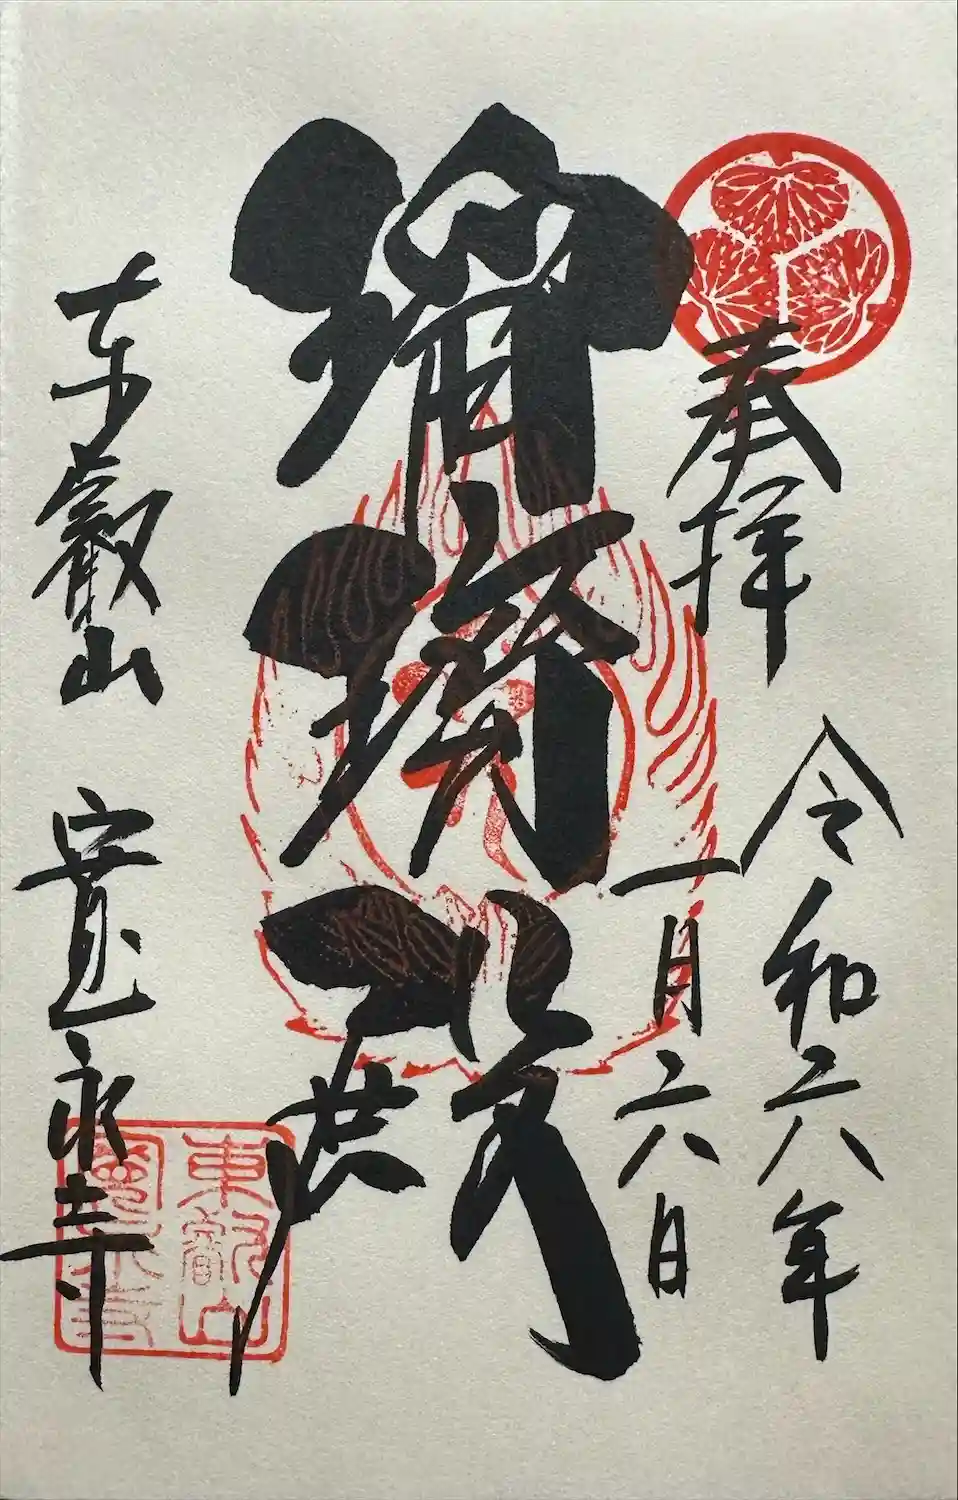 奉拝
令和六年
一月六日
瑠璃殿
東叡山 寛永寺
東叡山
寛永寺